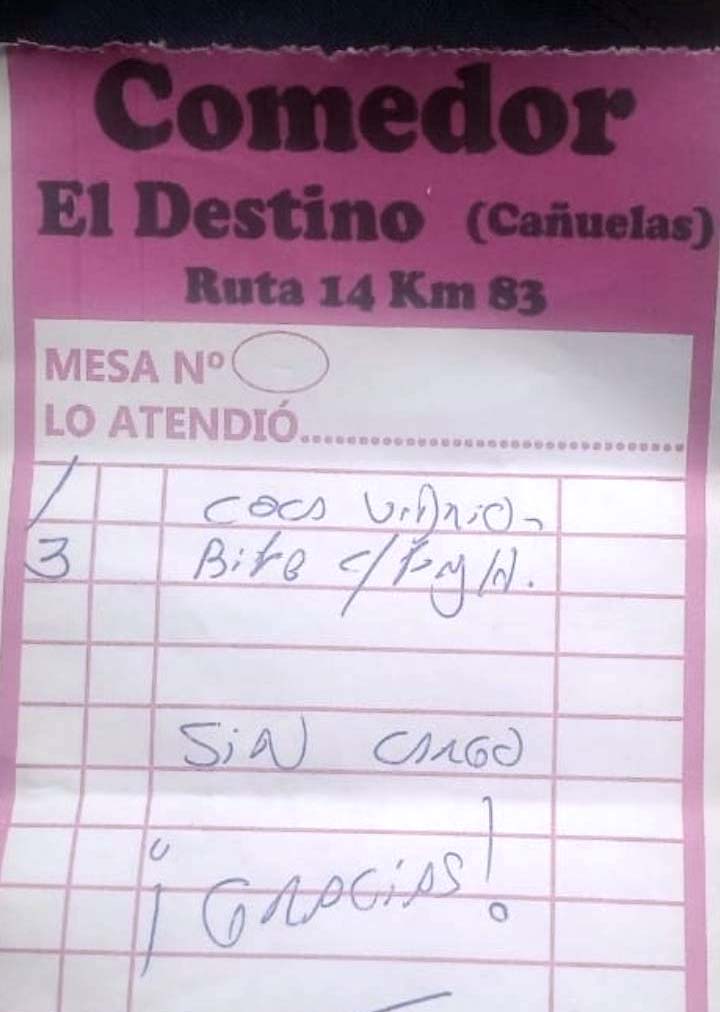 Comedor
El Destino (Cañuelas)
Ruta 14 Km 83
MESA Nº
LO ATENDIÓ
1 coca vidrio
3 Bife c/
Sin cargo
¡Gracias!